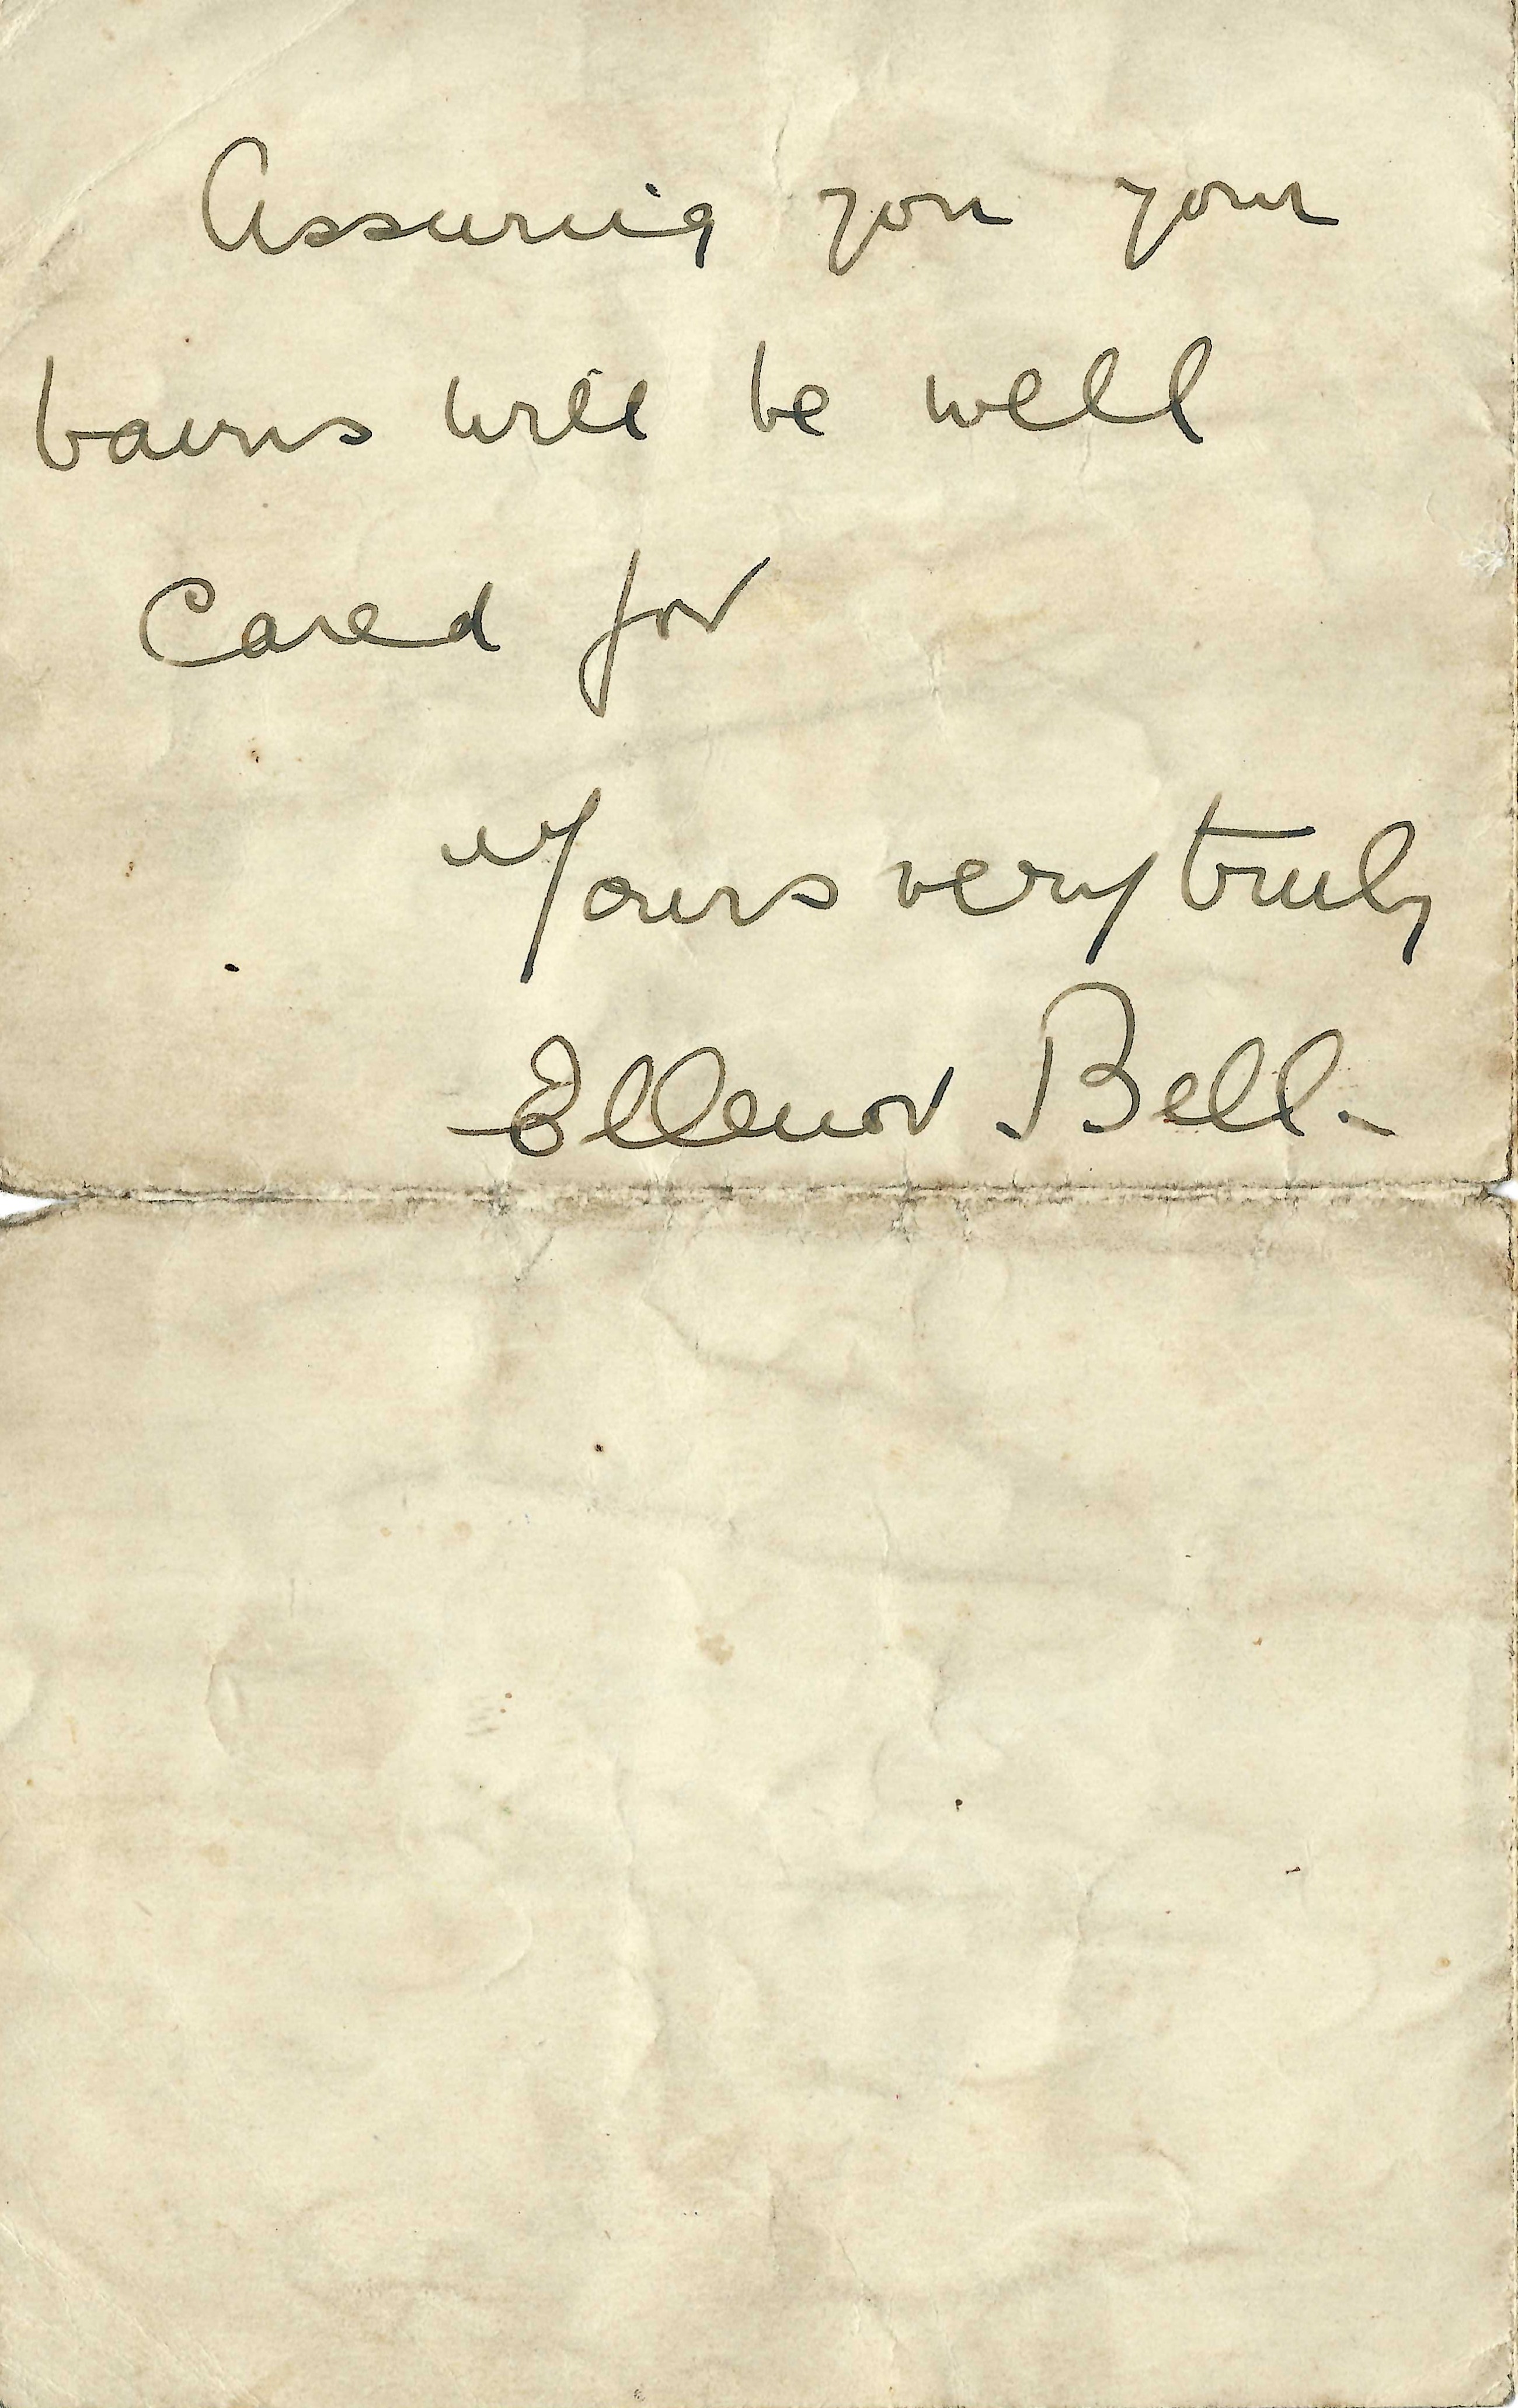 Assuring you your
bairns will be well
Cared for
Yours very truly
Ellenor Bell.